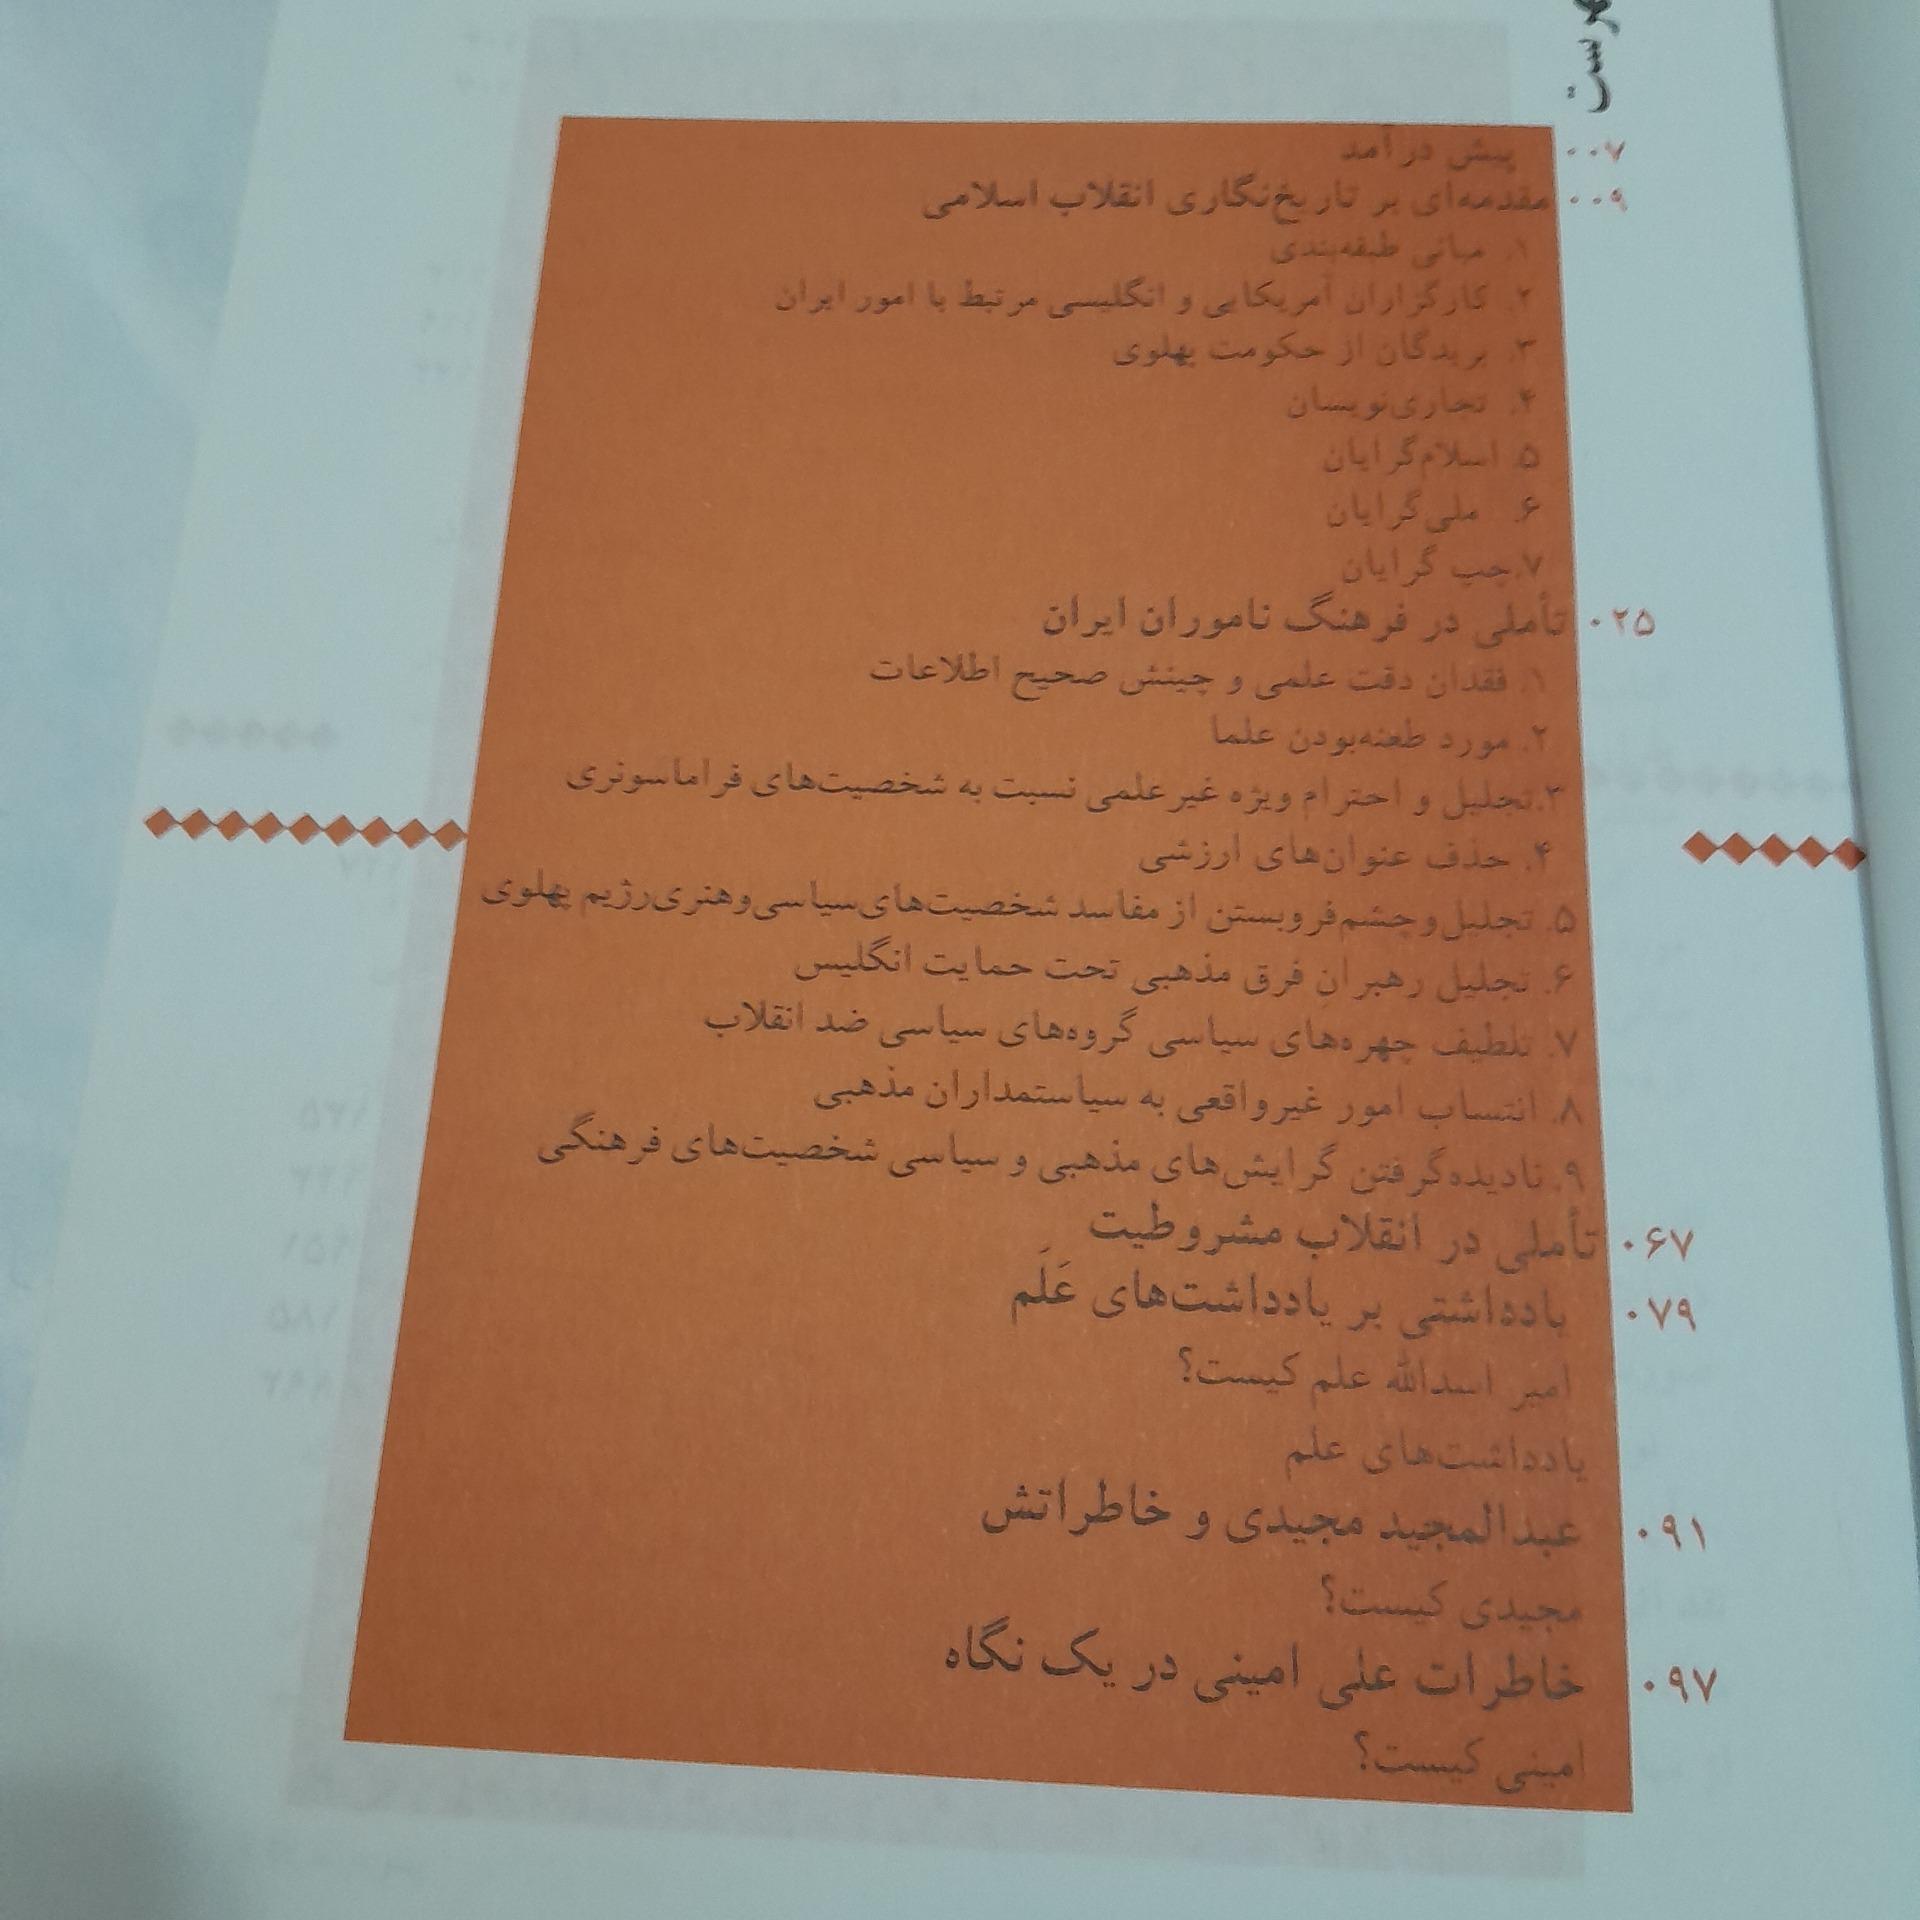 پیش درآمد ۰۰۷
مقدمه‌ای بر تاریخ‌نگاری انقلاب اسلامی ۰۰۹
۱. مبانی طبقه‌بندی
۲. کارگزاران آمریکایی و انگلیسی مرتبط با امور ایران
۳. بریدگان از حکومت پهلوی
۴. تجاری‌نویسان
۵. اسلام‌گرایان
۶. ملی‌گرایان
۷.چپ گرایان
تأملی در فرهنگ ناموران ایران ۰۲۵
۱. فقدان دقت علمی و چینش صحیح اطلاعات
۲. مورد طعنه‌بودن علما
۳.تجلیل و احترام ویژه غیرعلمی نسبت به شخصیت‌های فراماسونری
۴. حذف عنوان‌های ارزشی
۵. تجلیل‌وچشم‌فروبستن از مفاسد شخصیت‌های‌سیاسی‌وهنری‌رژیم پهلوی
۶. تجلیل رهبرانِ فرق مذهبی تحت حمایت انگلیس
۷. تلطیف چهره‌های سیاسی گروه‌های سیاسی ضد انقلاب
۸. انتساب امور غیرواقعی به سیاستمداران مذهبی
۹. نادیده‌گرفتن گرایش‌های مذهبی و سیاسی شخصیت‌های فرهنگی
تأملی در انقلاب مشروطیت ۰۶۷
یادداشتی بر یادداشت‌های عَلَم ۰۷۹
امیر اسدالله علم کیست؟
یادداشت‌های علم
عبدالمجید مجیدی و خاطراتش ۰۹۱
مجیدی کیست؟
خاطرات علی امینی در یک نگاه ۰۹۷
امینی کیست؟